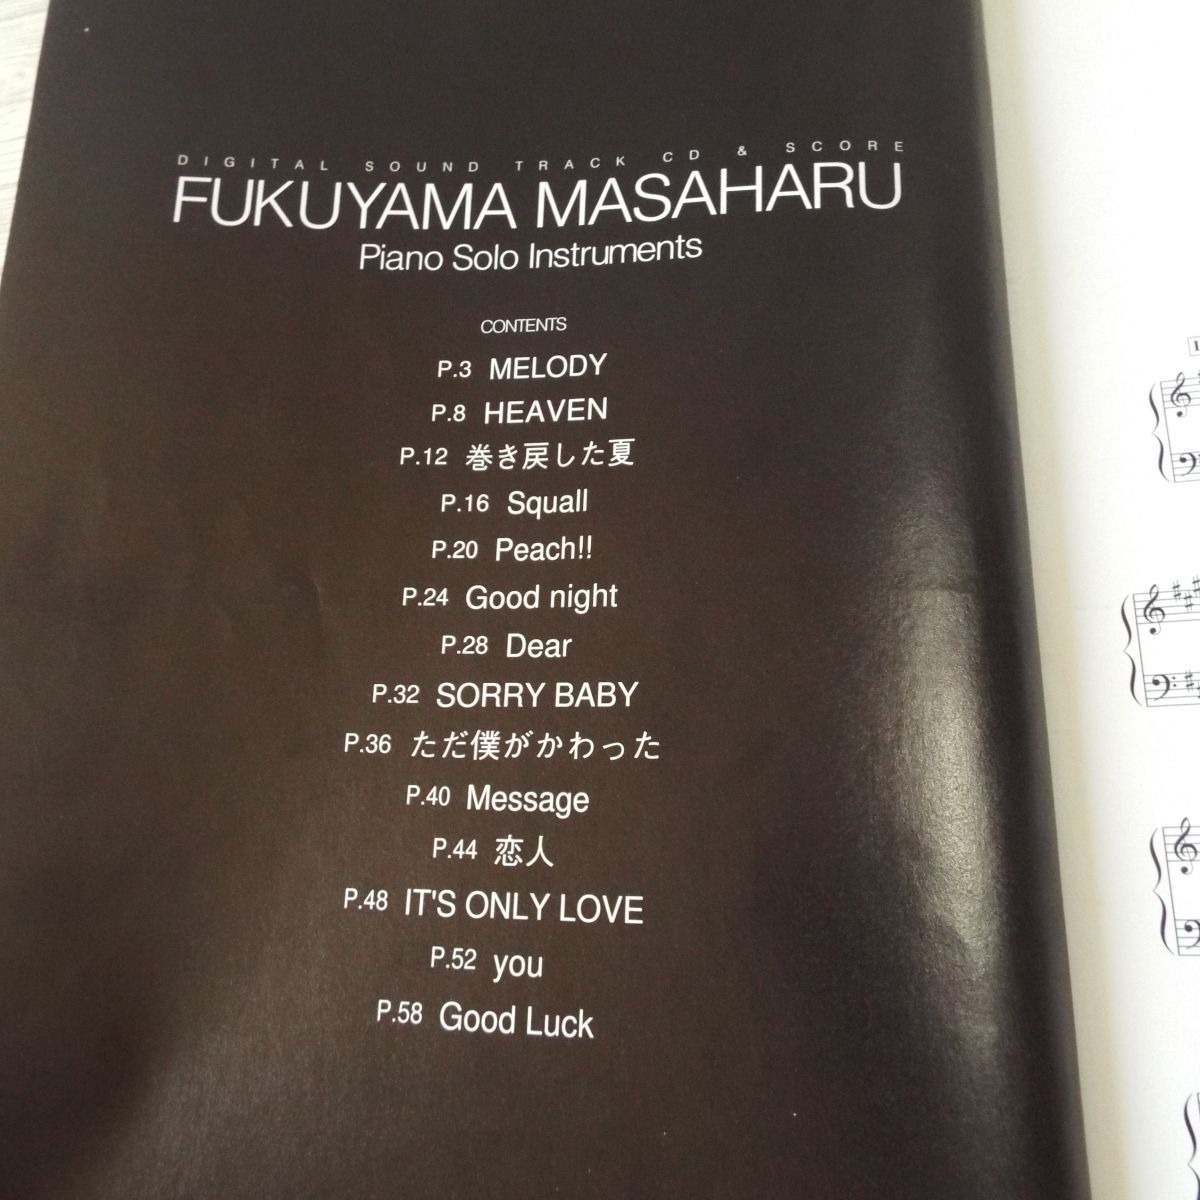 DIGITAL SOUND TRACK CD & SCORE
FUKUYAMA MASAHARU
Piano Solo Instruments
CONTENTS
P.3 MELODY
P.8 HEAVEN
P.12 巻き戻した夏
P.16 Squall
P.20 Peach!!
P.24 Good night
P.28 Dear
P.32 SORRY BABY
P.36 ただ僕がかわった
P.40 Message
P.44 恋人
P.48 IT'S ONLY LOVE
P.52 you
P.58 Good Luck